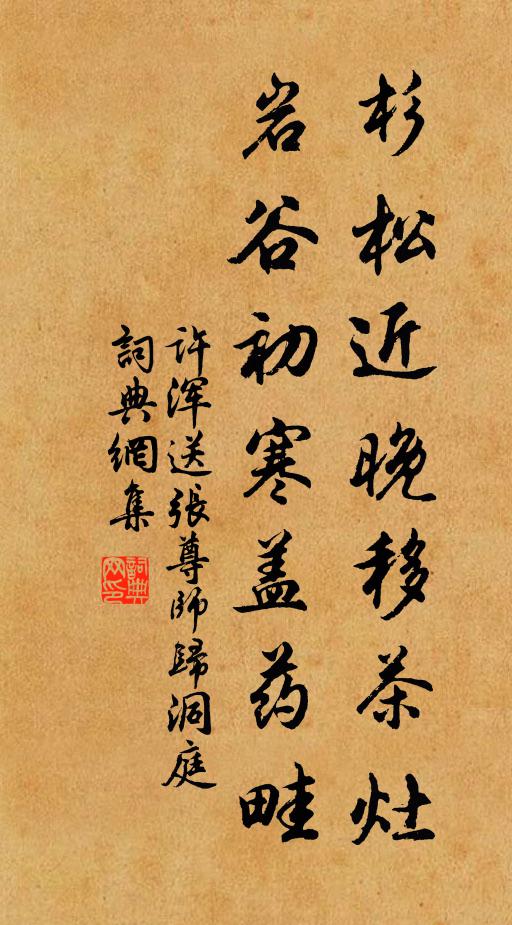 杉松近晚移茶灶
岩谷初寒盖药畦
许浑送張尊師歸洞庭
詞典網集
詞典网印